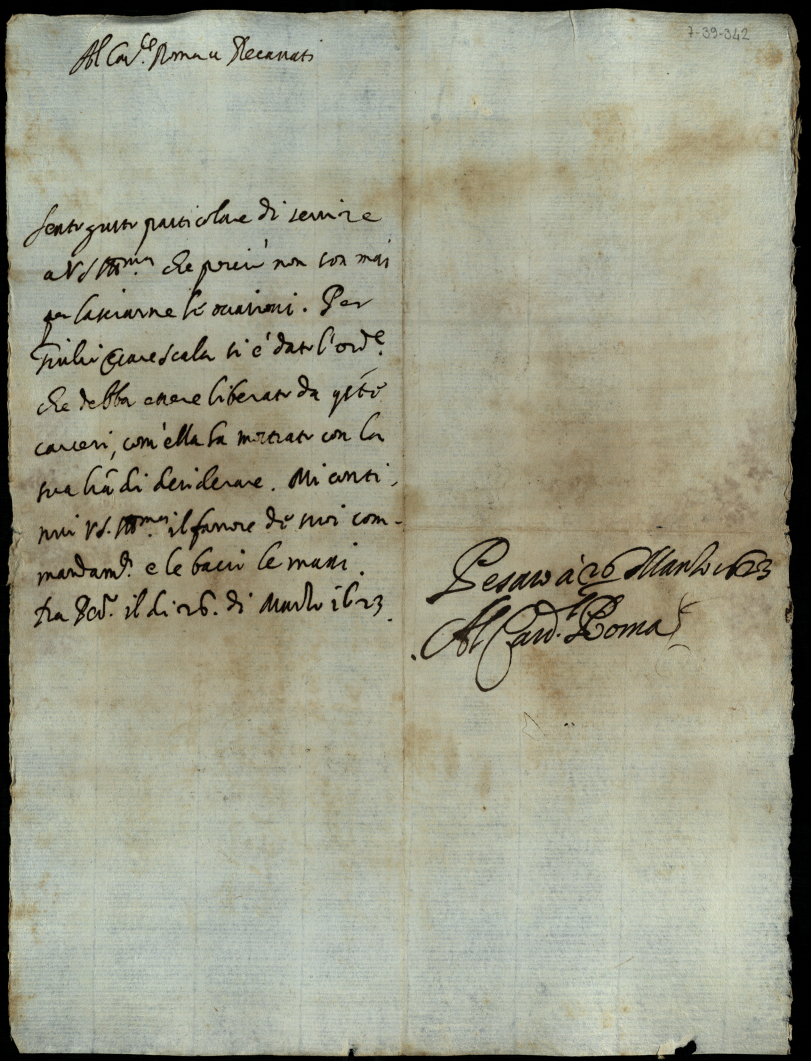 7-39-342
Al Card.le Roma a Recanati
Sento gusto particolare di servire
a V S Ill.ma che perciò non son mai
per lasciarne le occasioni. Per
Scala si è dato l'ord.e
che debba essere liberato da q.ste
carceri, com'ella ha mostrato con la
sua di desiderare. Mi conti-
nui V S. Ill.ma il favore de suoi com-
mandam.ti e le bacio le mani.
il di 26. di Marzo 1623.
Pesaro à 26 Marzo 1623
Al Card.le Roma